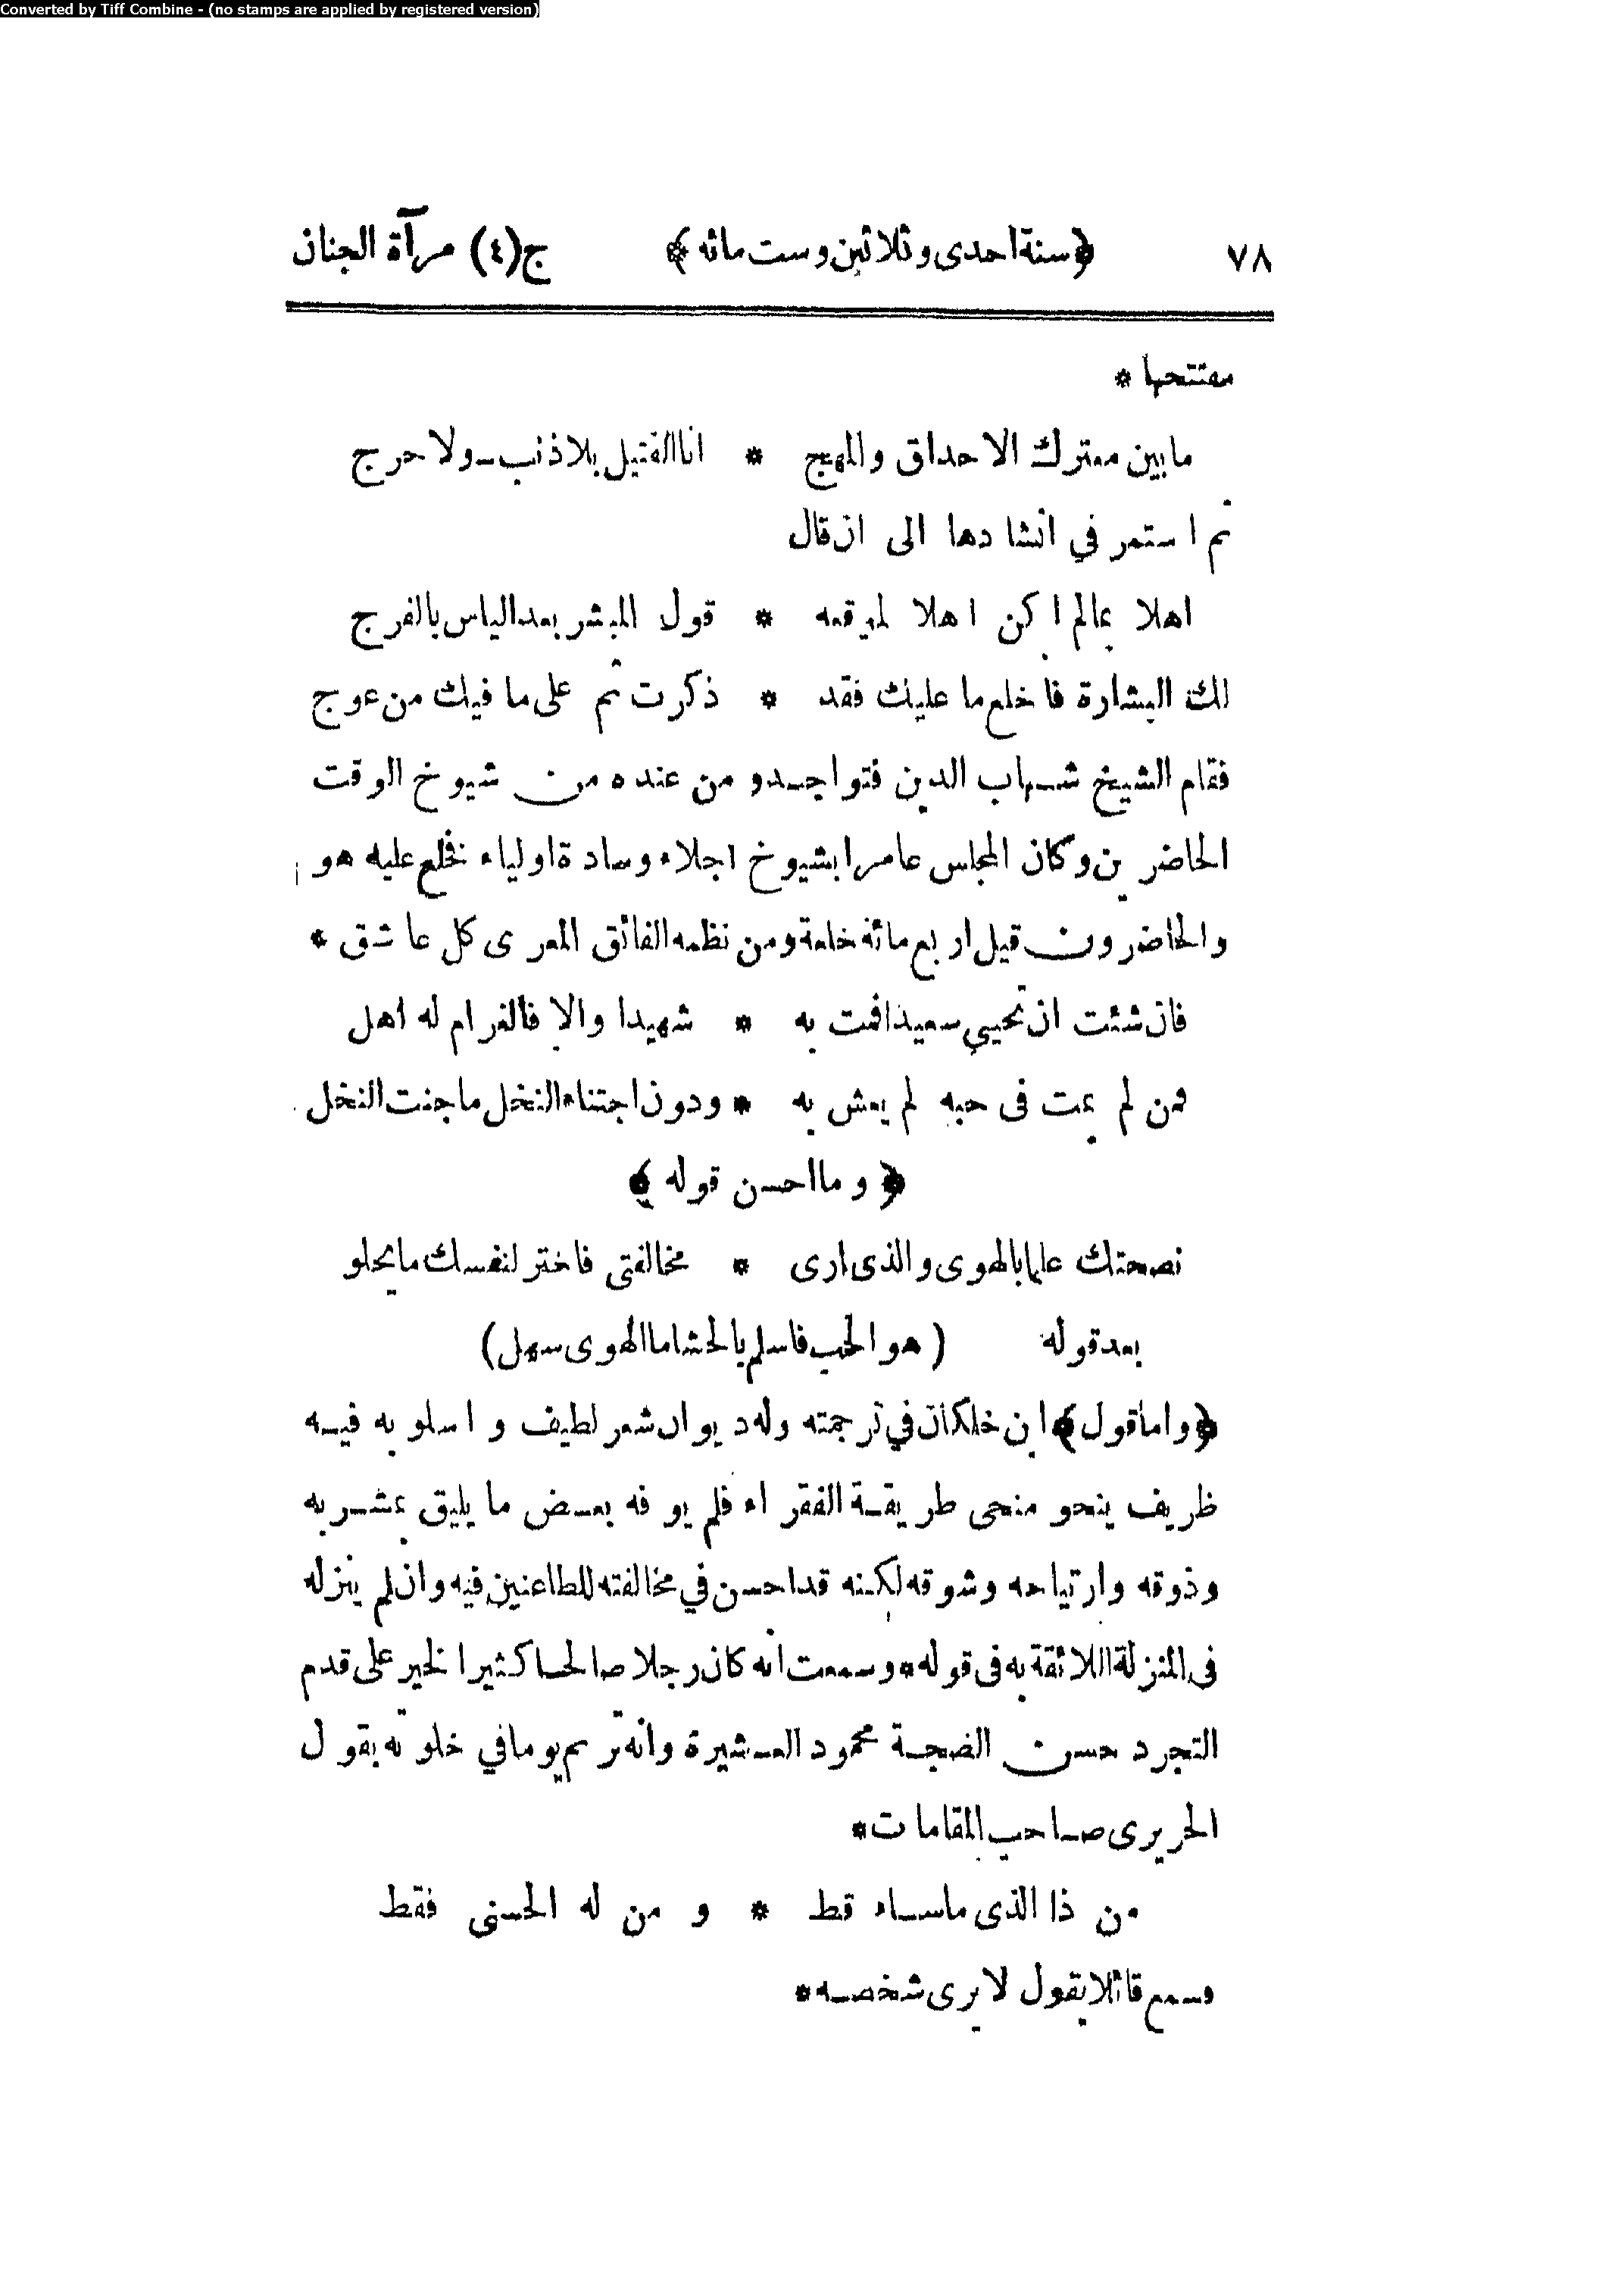 Converted by Tiff Combine - (no stamps are applied by registered version)
٧٨ ﴿سنة احدى وثلاثين وست مائه﴾ ج(٤) مرآة الجنان
مفتتحها *
مابين معترك الاحداق والمهج * انا القتيل بلا ذنب ولا حرج
ثم استمر في انشادها الى ان قال
اهلا بمالم اكن اهلا لموقعه * قول المبشر بعد الياس بالفرج
لك البشارة فاخلع ما عليك فقد * ذكرت ثم على ما فيك من عوج
فقام الشيخ شهاب الدين فتواجد و من عنده من شيوخ الوقت
الحاضرين وكان المجلس عامرا بشيوخ اجلاء وسادة اولياء نخلع عليه هو
والحاضرون قيل اربع مائة خلعة ومن نظمه الفائق المعرى كل عاشق *
فان شئت ان تحيي سعيدا فمت به * شهيدا والا فالغرام له اهل
فمن لم يمت فى حبه لم يعش به * ودون اجتناء النخل ماجنت النخل
﴿ وما احسن قوله ﴾
نصحتك علما بالهوى والذى ارى * مخالفتى فاختر لنفسك مايحلو
بعد قوله (هو الحب فاسلم بالحشا ما الهوى سهل)
﴿واماقول﴾ ابن خلكان في ترجمته وله ديوان شعر لطيف واسلوبه فيه
ظريف ينحو منحى طريقة الفقراء فلم يوفه بعض ما يليق بمشربه
وذوقه وارتياحه وشوقه لكنه قد احسن في مخالفته للطاعنين فيه وان لم ينزله
فى المنزلة اللائقة به فى قوله * وسمعت انه كان رجلا صالحا كثير الخير على قدم
التجرد حسن الضجة محمود العشيرة وانه ترنم يوما في خلوته بقول
الحريرى صاحب المقامات *
من ذا الذى ماساء قط * و من له الحسنى فقط
وسمع قائلا يقول لا يرى شخصه *